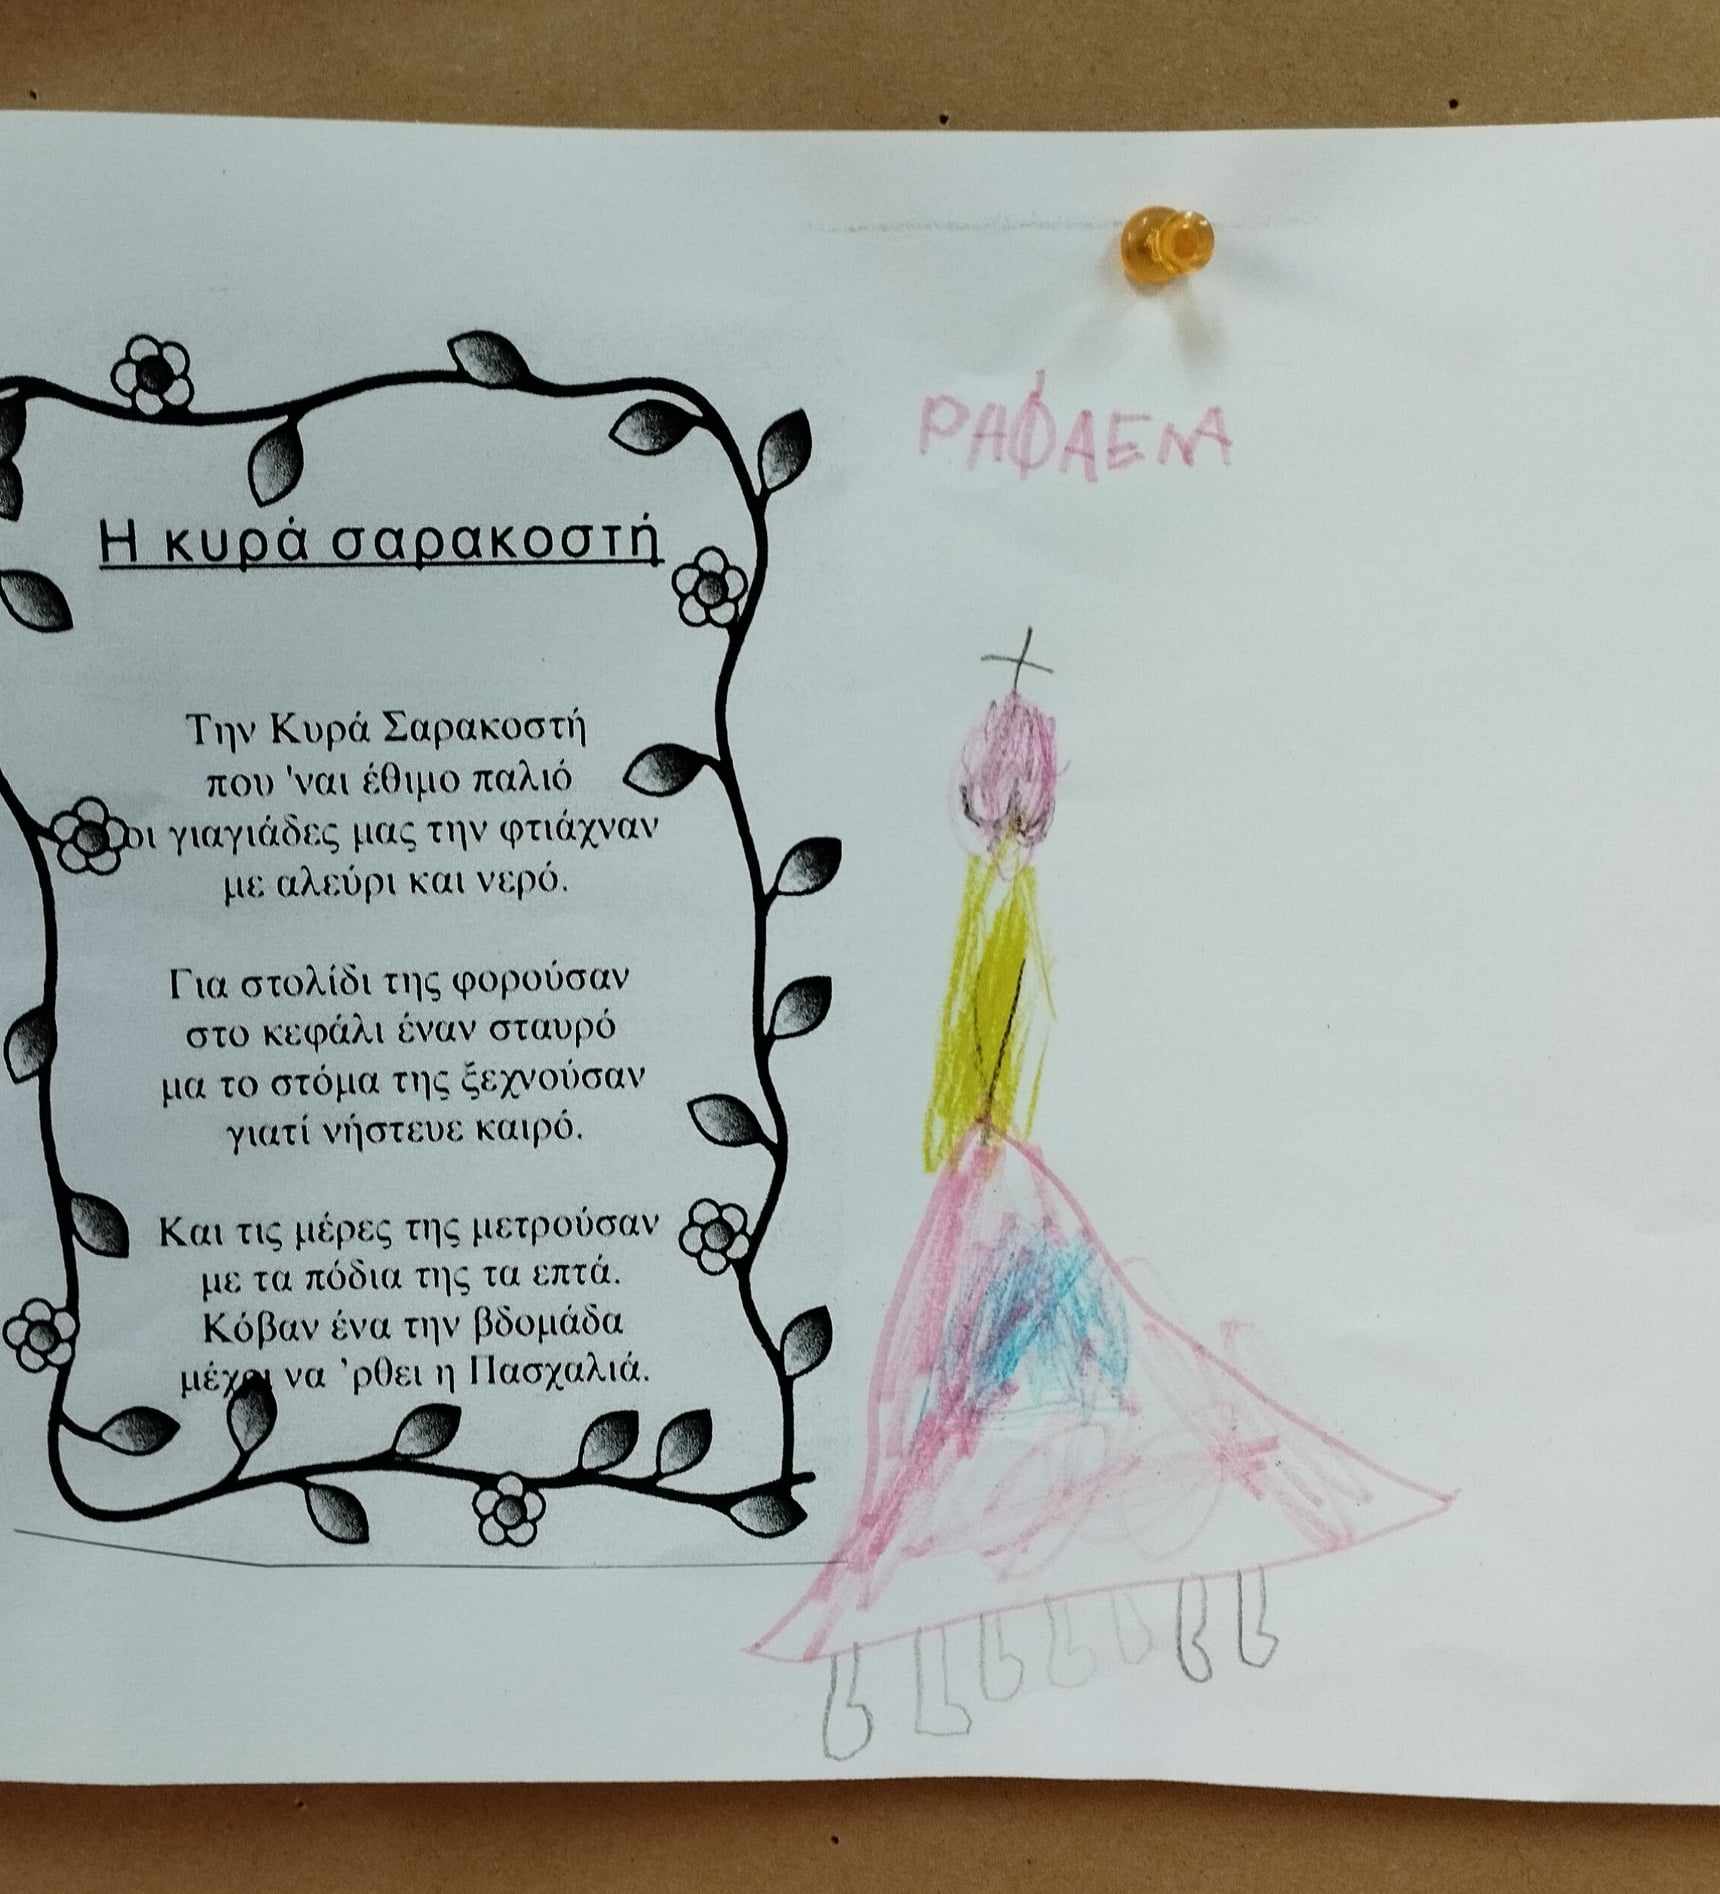 ΡΑΦΑΕΝΑ
Η κυρά σαρακοστή
Την Κυρά Σαρακοστή
που 'ναι έθιμο παλιό
οι γιαγιάδες μας την φτιάχναν
με αλεύρι και νερό.
Για στολίδι της φορούσαν
στο κεφάλι έναν σταυρό
μα το στόμα της ξεχνούσαν
γιατί νήστευε καιρό.
Και τις μέρες της μετρούσαν
με τα πόδια της τα επτά.
Κόβαν ένα την βδομάδα
μέχρι να ’ρθει η Πασχαλιά.